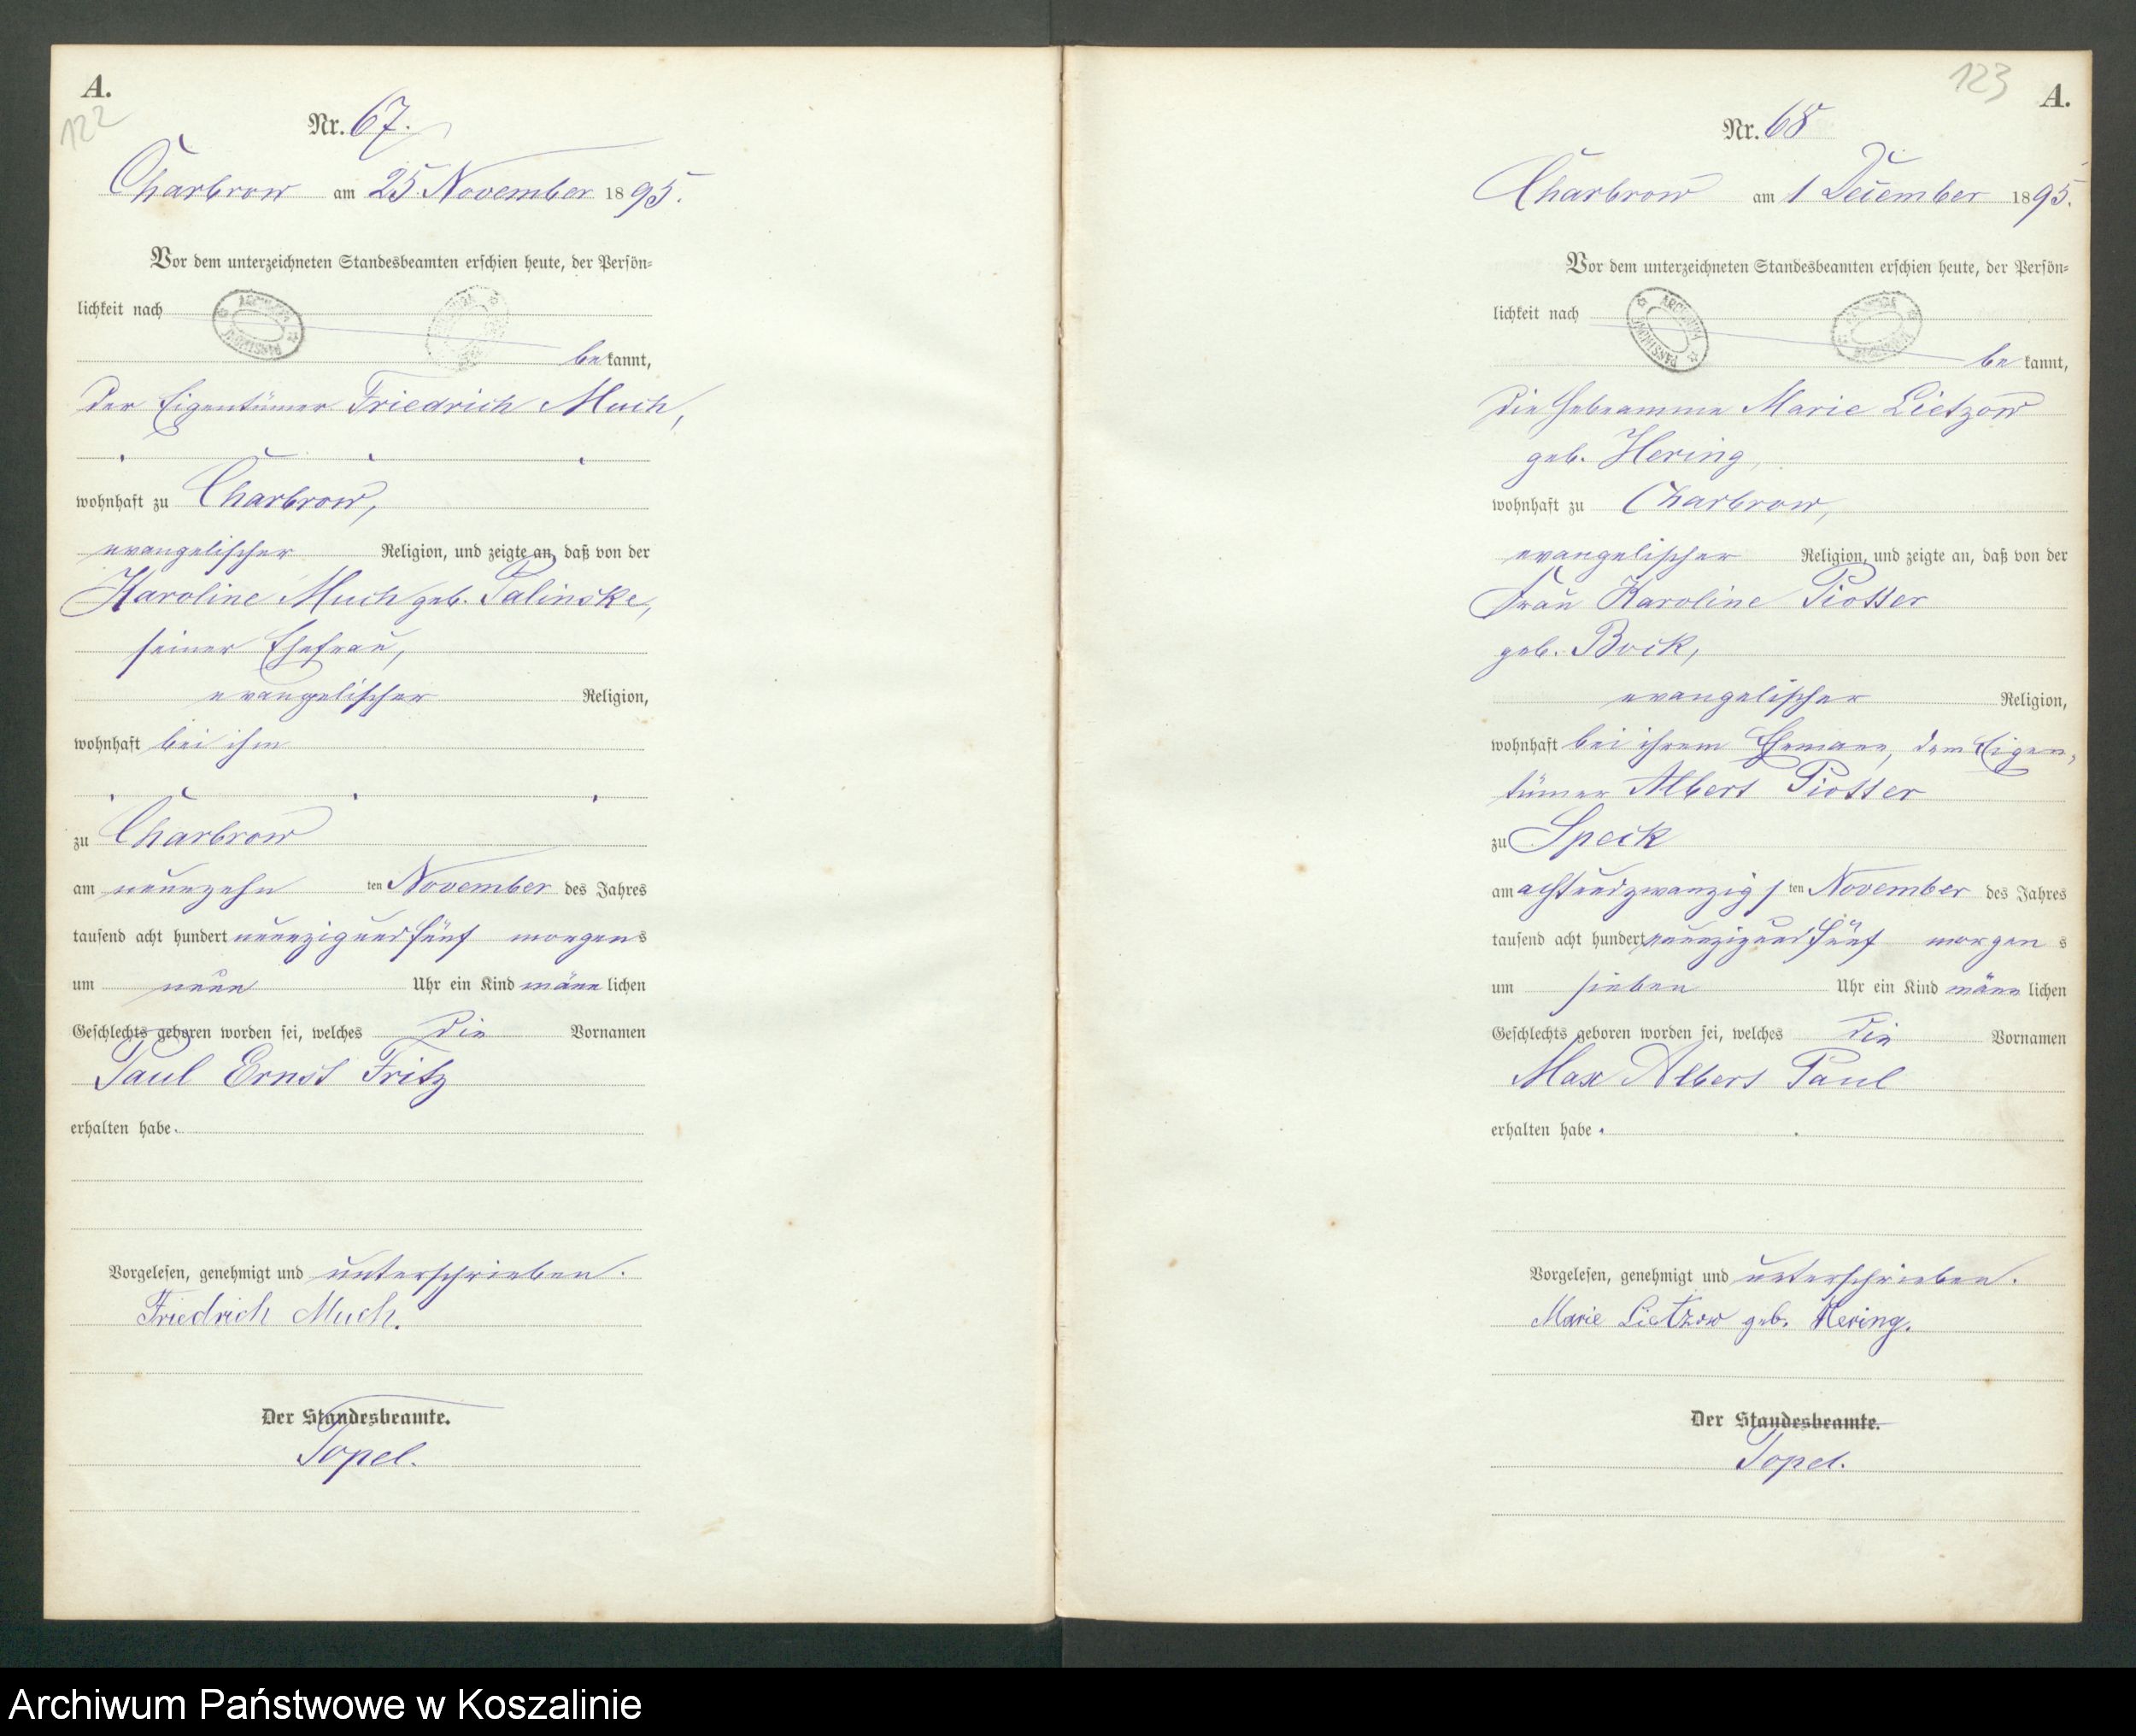 A.
122
Nr. 67.
Charbrow am 25. November 1895.
Vor dem unterzeichneten Standesbeamten erschien heute, der Persön=
lichkeit nach
bekannt,
der Eigentümer Friedrich Much,
wohnhaft zu Charbrow,
evangelischer Religion, und zeigte an, daß von der
Karoline Much geb. Palinske,
seiner Ehefrau,
evangelischer Religion,
wohnhaft bei ihm
zu Charbrow
am neunzehnten November des Jahres
tausend acht hundert neunzig und fünf morgens
um neun Uhr ein Kind männlichen
Geschlechts geboren worden sei, welches die Vornamen
Paul Ernst Fritz
erhalten habe.
Vorgelesen, genehmigt und unterschrieben.
Friedrich Much.
Der Standesbeamte.
Topel.
123
A.
Nr. 68
Charbrow am 1 Dezember 1895.
Vor dem unterzeichneten Standesbeamten erschien heute, der Persön=
lichkeit nach
bekannt,
die Hebeamme Marie Lietzow
geb. Hering,
wohnhaft zu Charbrow,
evangelischer Religion, und zeigte an, daß von der
Frau Karoline Piotter
geb. Bock,
evangelischer Religion,
wohnhaft bei ihrem Ehemann, dem Eigen,
tümer Albert Piotter
zu Speck
am achtundzwanzigsten November des Jahres
tausend acht hundert neunzig und fünf morgens
um sieben Uhr ein Kind männlichen
Geschlechts geboren worden sei, welches die Vornamen
Max Albert Paul
erhalten habe.
Vorgelesen, genehmigt und unterschrieben.
Marie Lietzow geb. Hering.
Der Standesbeamte.
Topel.
Archiwum Państwowe w Koszalinie